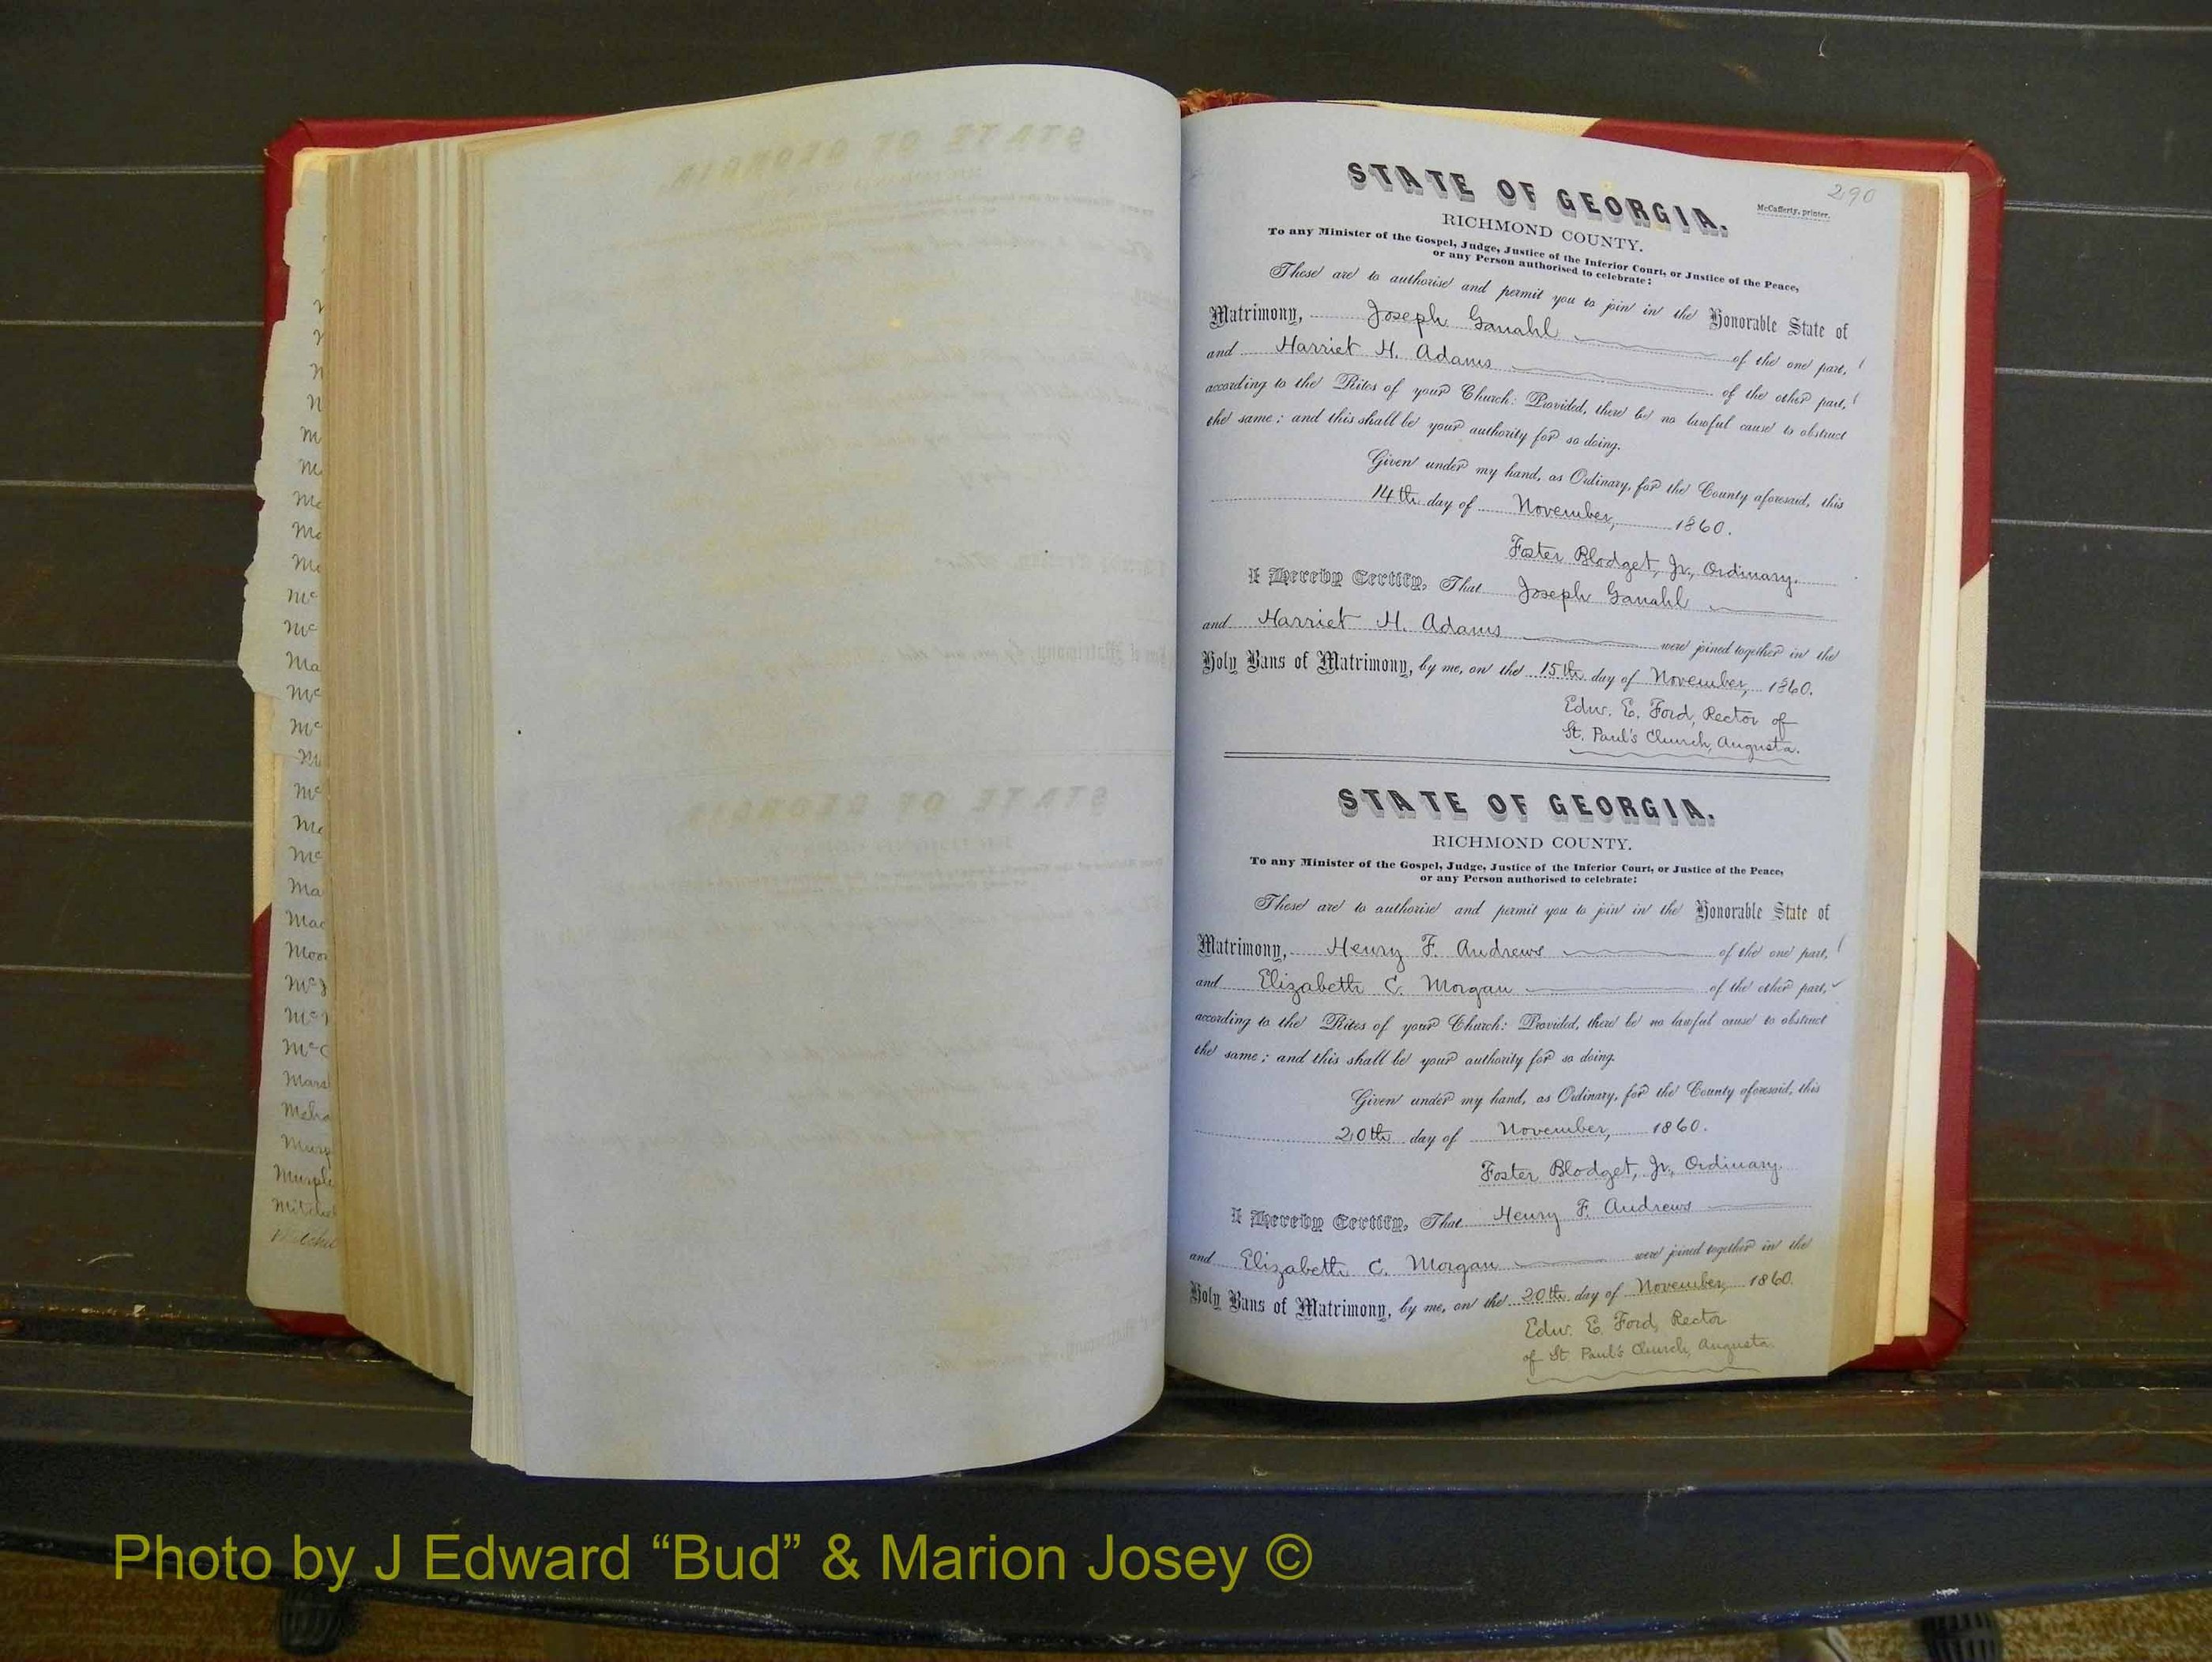 290
STATE OF GEORGIA.
McCafferty, printer.
RICHMOND COUNTY.
To any Minister of the Gospel, Judge, Justice of the Inferior Court, or Justice of the Peace,
or any Person authorised to celebrate:
These are to authorise and permit you to join in the Honorable State of
Matrimony, Joseph Ganahl of the one part,
and Harriet H. Adams of the other part,
according to the Rites of your Church: Provided, there be no lawful cause to obstruct
the same; and this shall be your authority for so doing.
Given under my hand, as Ordinary, for the County aforesaid, this
14th day of November, 1860.
Foster Blodget, Jr., Ordinary.
I Hereby Certify, That Joseph Ganahl
and Harriet H. Adams were joined together in the
Holy Bans of Matrimony, by me, on the 15th day of November, 1860.
Edw. E. Ford, Rector of
St. Paul's Church, Augusta.
STATE OF GEORGIA.
RICHMOND COUNTY.
To any Minister of the Gospel, Judge, Justice of the Inferior Court, or Justice of the Peace,
or any Person authorised to celebrate:
These are to authorise and permit you to join in the Honorable State of
Matrimony, Henry F. Andrews of the one part,
and Elizabeth C. Morgan of the other part,
according to the Rites of your Church: Provided, there be no lawful cause to obstruct
the same; and this shall be your authority for so doing.
Given under my hand, as Ordinary, for the County aforesaid, this
20th day of November, 1860.
Foster Blodget, Jr., Ordinary.
I Hereby Certify, That Henry F. Andrews
and Elizabeth C. Morgan were joined together in the
Holy Bans of Matrimony, by me, on the 20th day of November, 1860.
Edw. E. Ford, Rector
of St. Paul's Church, Augusta.
Photo by J Edward “Bud” & Marion Josey ©